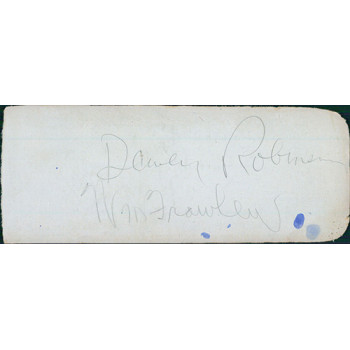 Dewey Robinson
Wm Frawley